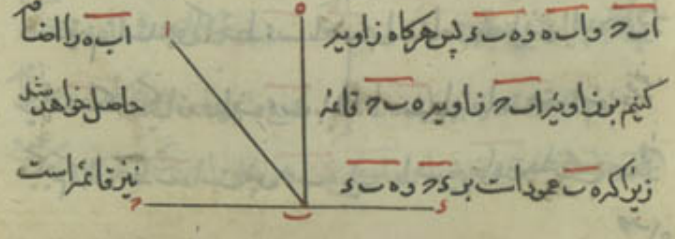 ابح وابه وهبء پس هرکاه زاویهٔ ابه را اضافه
کنیم بر زاویهٔ ابح زاویه هبح قائمهٔ حاصل خواهد شد
زیرا که هب عمود است بر ءح و هبء نیز قائمه است
ه
ا
ح
ب
ء